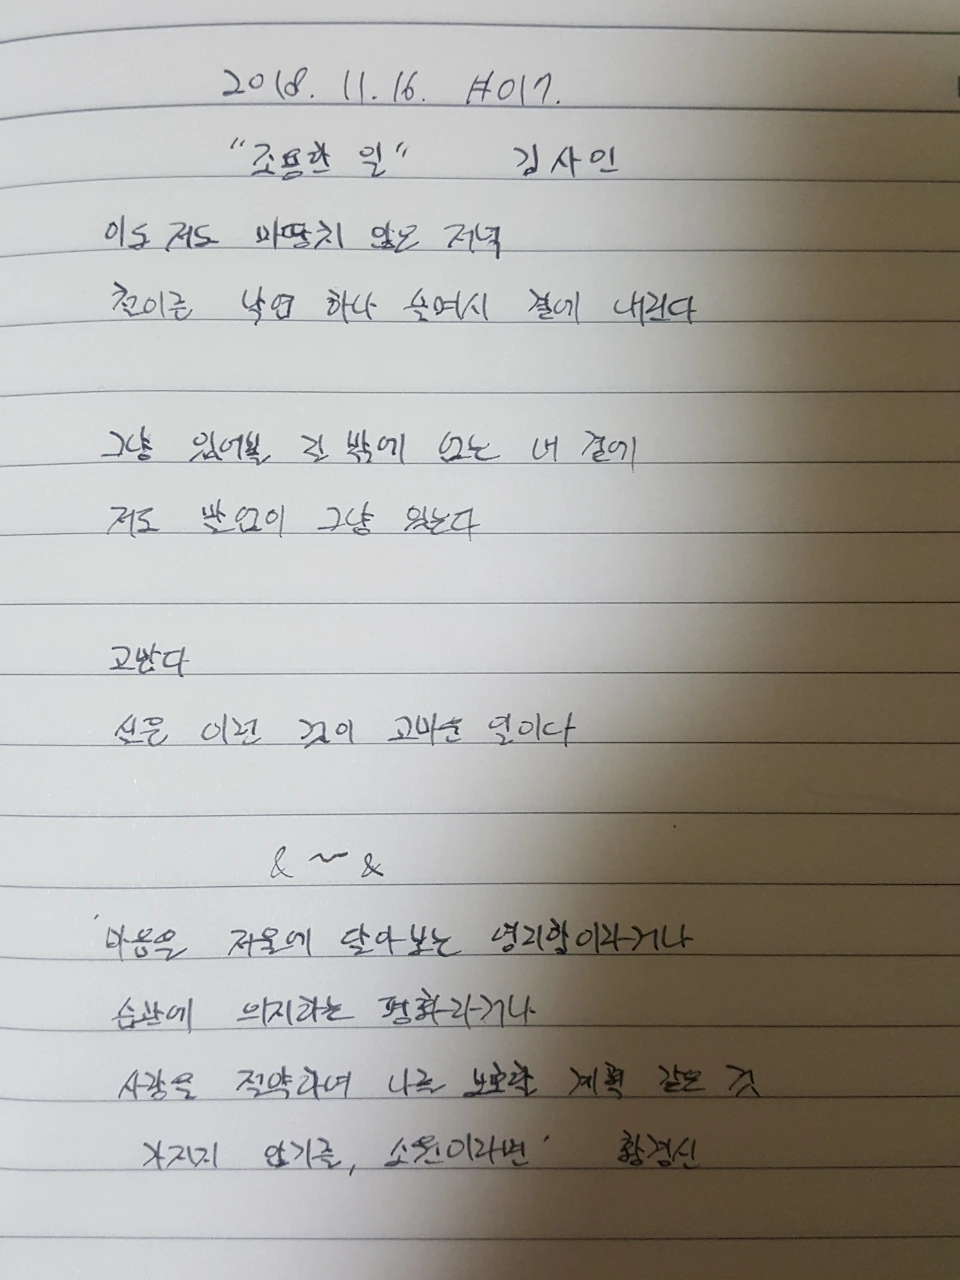 2018. 11. 16. #017.
"조용한 일" 김사인
이도 저도 마땅치 않은 저녁
철이른 낙엽 하나 슬며시 곁에 내린다
그냥 있어볼 길 밖에 없는 내 곁에
저도 말없이 그냥 있는다
고맙다
실은 이런 것이 고마운 일이다
& ~ &
'마음을 저울에 달아보는 영리함이라거나
습관에 의지하는 평화라거나
사랑을 절약하여 나를 보호할 계획 같은 것
가지지 않기를, 소원이라면' 황경신